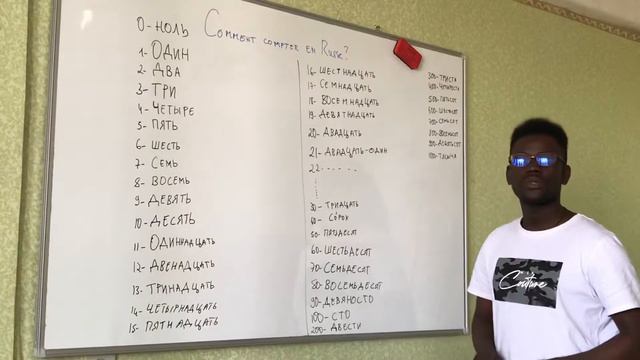 Comment compter en Russe?
0- НОЛЬ
1- ОДИН
2- ДВА
3- ТРИ
4- ЧЕТЫРЕ
5- ПЯТЬ
6- ШЕСТЬ
7- СЕМЬ
8- ВОСЕМЬ
9- ДЕВЯТЬ
10- ДЕСЯТЬ
11- ОДИННАДЦАТЬ
12- ДВЕНАДЦАТЬ
13- ТРИНАДЦАТЬ
14- ЧЕТЫРНАДЦАТЬ
15- ПЯТНАДЦАТЬ
16- ШЕСТНАДЦАТЬ
17- СЕМНАДЦАТЬ
18- ВОСЕМНАДЦАТЬ
19- ДЕВЯТНАДЦАТЬ
20- ДВАДЦАТЬ
21- ДВАДЦАТЬ-ОДИН
22------
30- ТРИДЦАТЬ
40- СОРОК
50- ПЯТЬДЕСЯТ
60- ШЕСТЬДЕСЯТ
70- СЕМЬДЕСЯТ
80- ВОСЕМЬДЕСЯТ
90- ДЕВЯНОСТО
100- СТО
200- ДВЕСТИ
300- ТРИСТА
400- ЧЕТЫРЕСТА
500- ПЯТЬСОТ
600- ШЕСТЬСОТ
700- СЕМЬСОТ
800- ВОСЕМЬСОТ
900- ДЕВЯТЬСОТ
ТЫСЯЧА
Couture